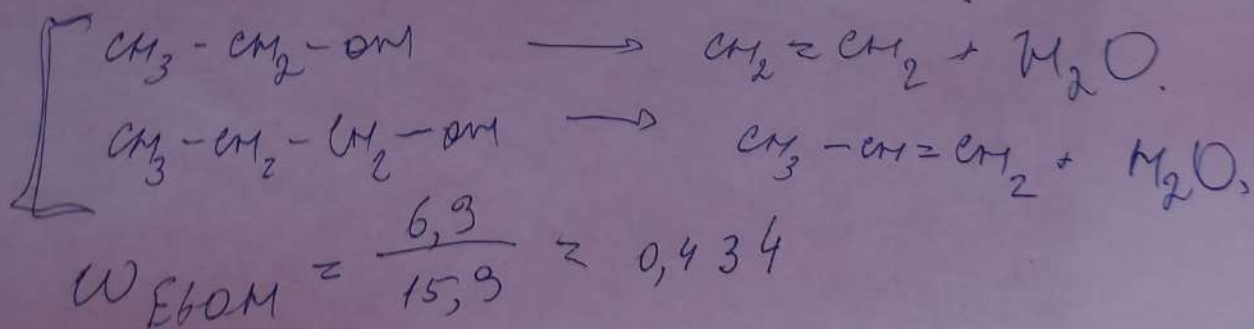 CH₃ - CH₂ - OH → CH₂ = CH₂ + H₂O.
CH₃ - CH₂ - CH₂ - OH → CH₃ - CH = CH₂ + H₂O,
W EtOH = 6,9 / 15,9 = 0,434